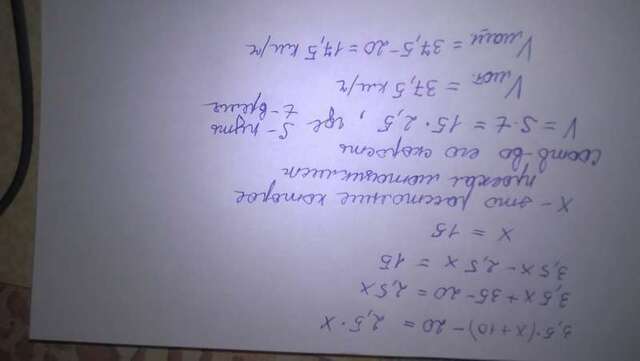 3,5·(x+10)-20 = 2,5·x
3,5x+35-20 = 2,5x
3,5x-2,5x = 15
x = 15
x - это расстояние которое
проехал мотоциклист
соотв-во его скорость
V = S·t = 15·2,5, где S-путь
t-время
V мот. = 37,5 км/ч
V маш. = 37,5-20 = 17,5 км/ч